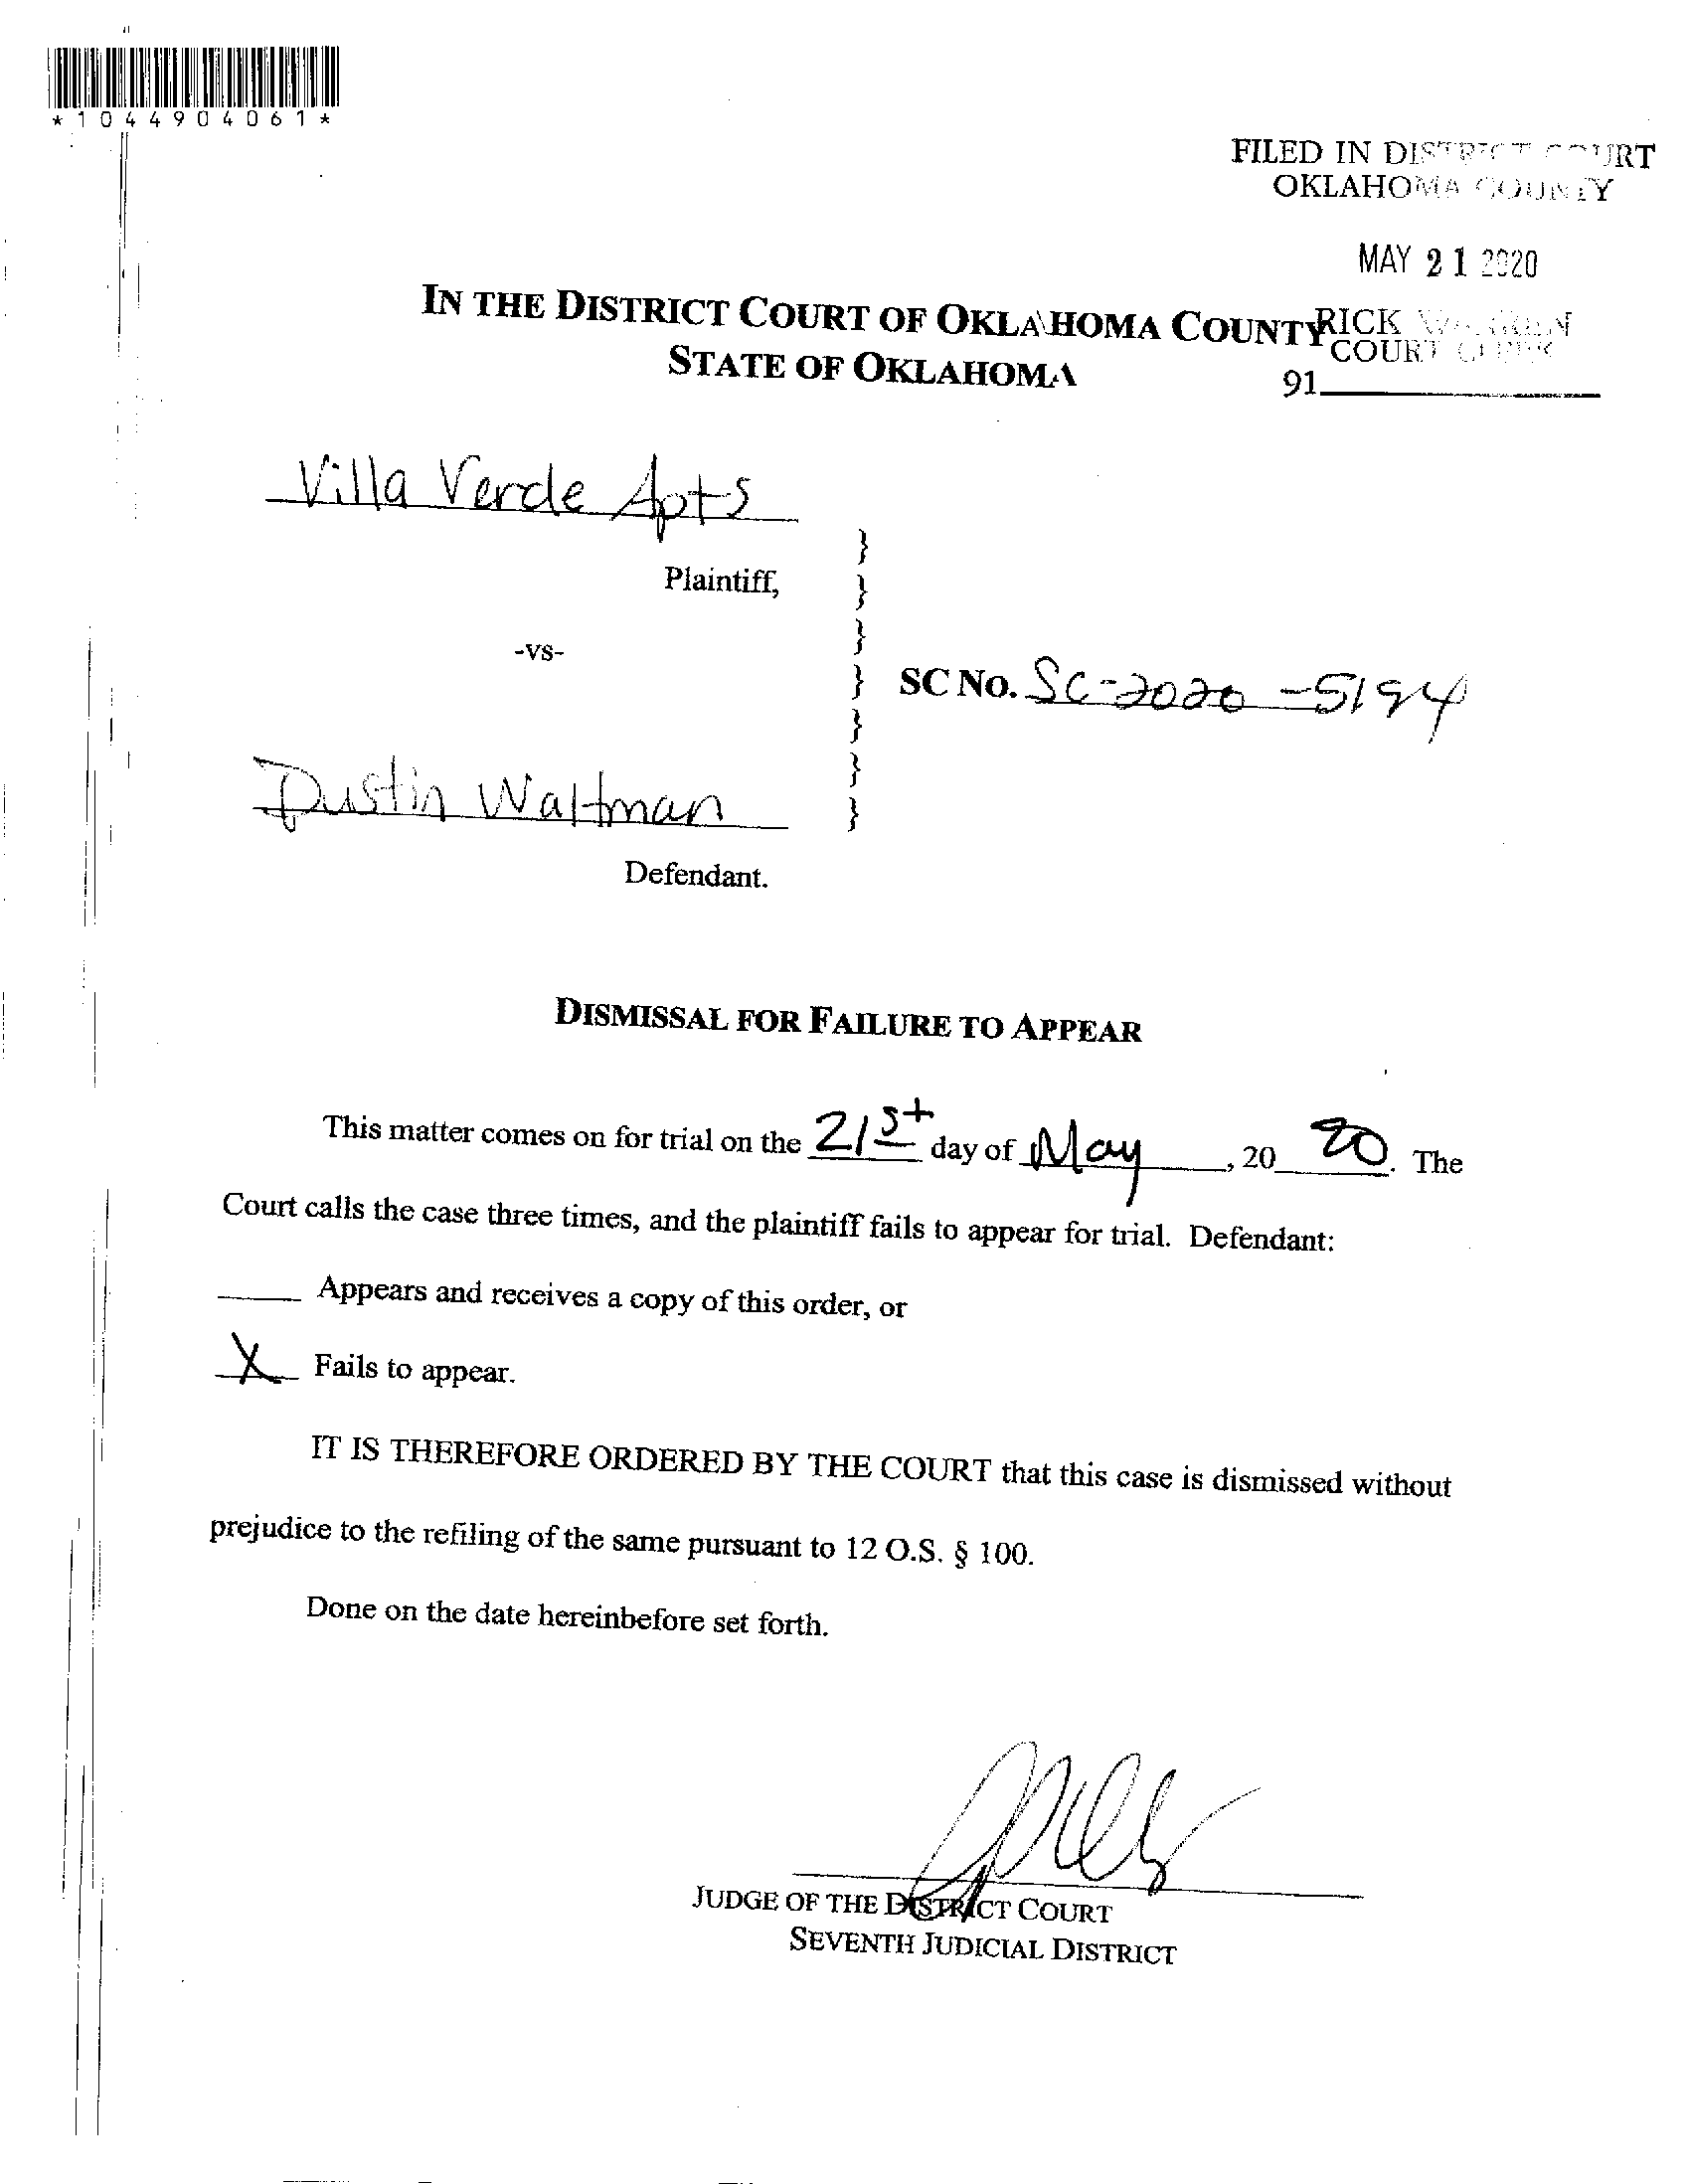 *1044904061*
FILED IN DISTRICT COURT
OKLAHOMA COUNTY
MAY 21 2020
IN THE DISTRICT COURT OF OKLAHOMA COUNTY
STATE OF OKLAHOMA
RICK WARREN
COURT CLERK
91
Villa Verde Apts
Plaintiff,
-vs-
SC No. SC-2020-5194
Dustin Waltman
Defendant.
DISMISSAL FOR FAILURE TO APPEAR
This matter comes on for trial on the 21st day of May, 20 20. The
Court calls the case three times, and the plaintiff fails to appear for trial. Defendant:
Appears and receives a copy of this order, or
X Fails to appear.
IT IS THEREFORE ORDERED BY THE COURT that this case is dismissed without
prejudice to the refiling of the same pursuant to 12 O.S. § 100.
Done on the date hereinbefore set forth.
JUDGE OF THE DISTRICT COURT
SEVENTH JUDICIAL DISTRICT